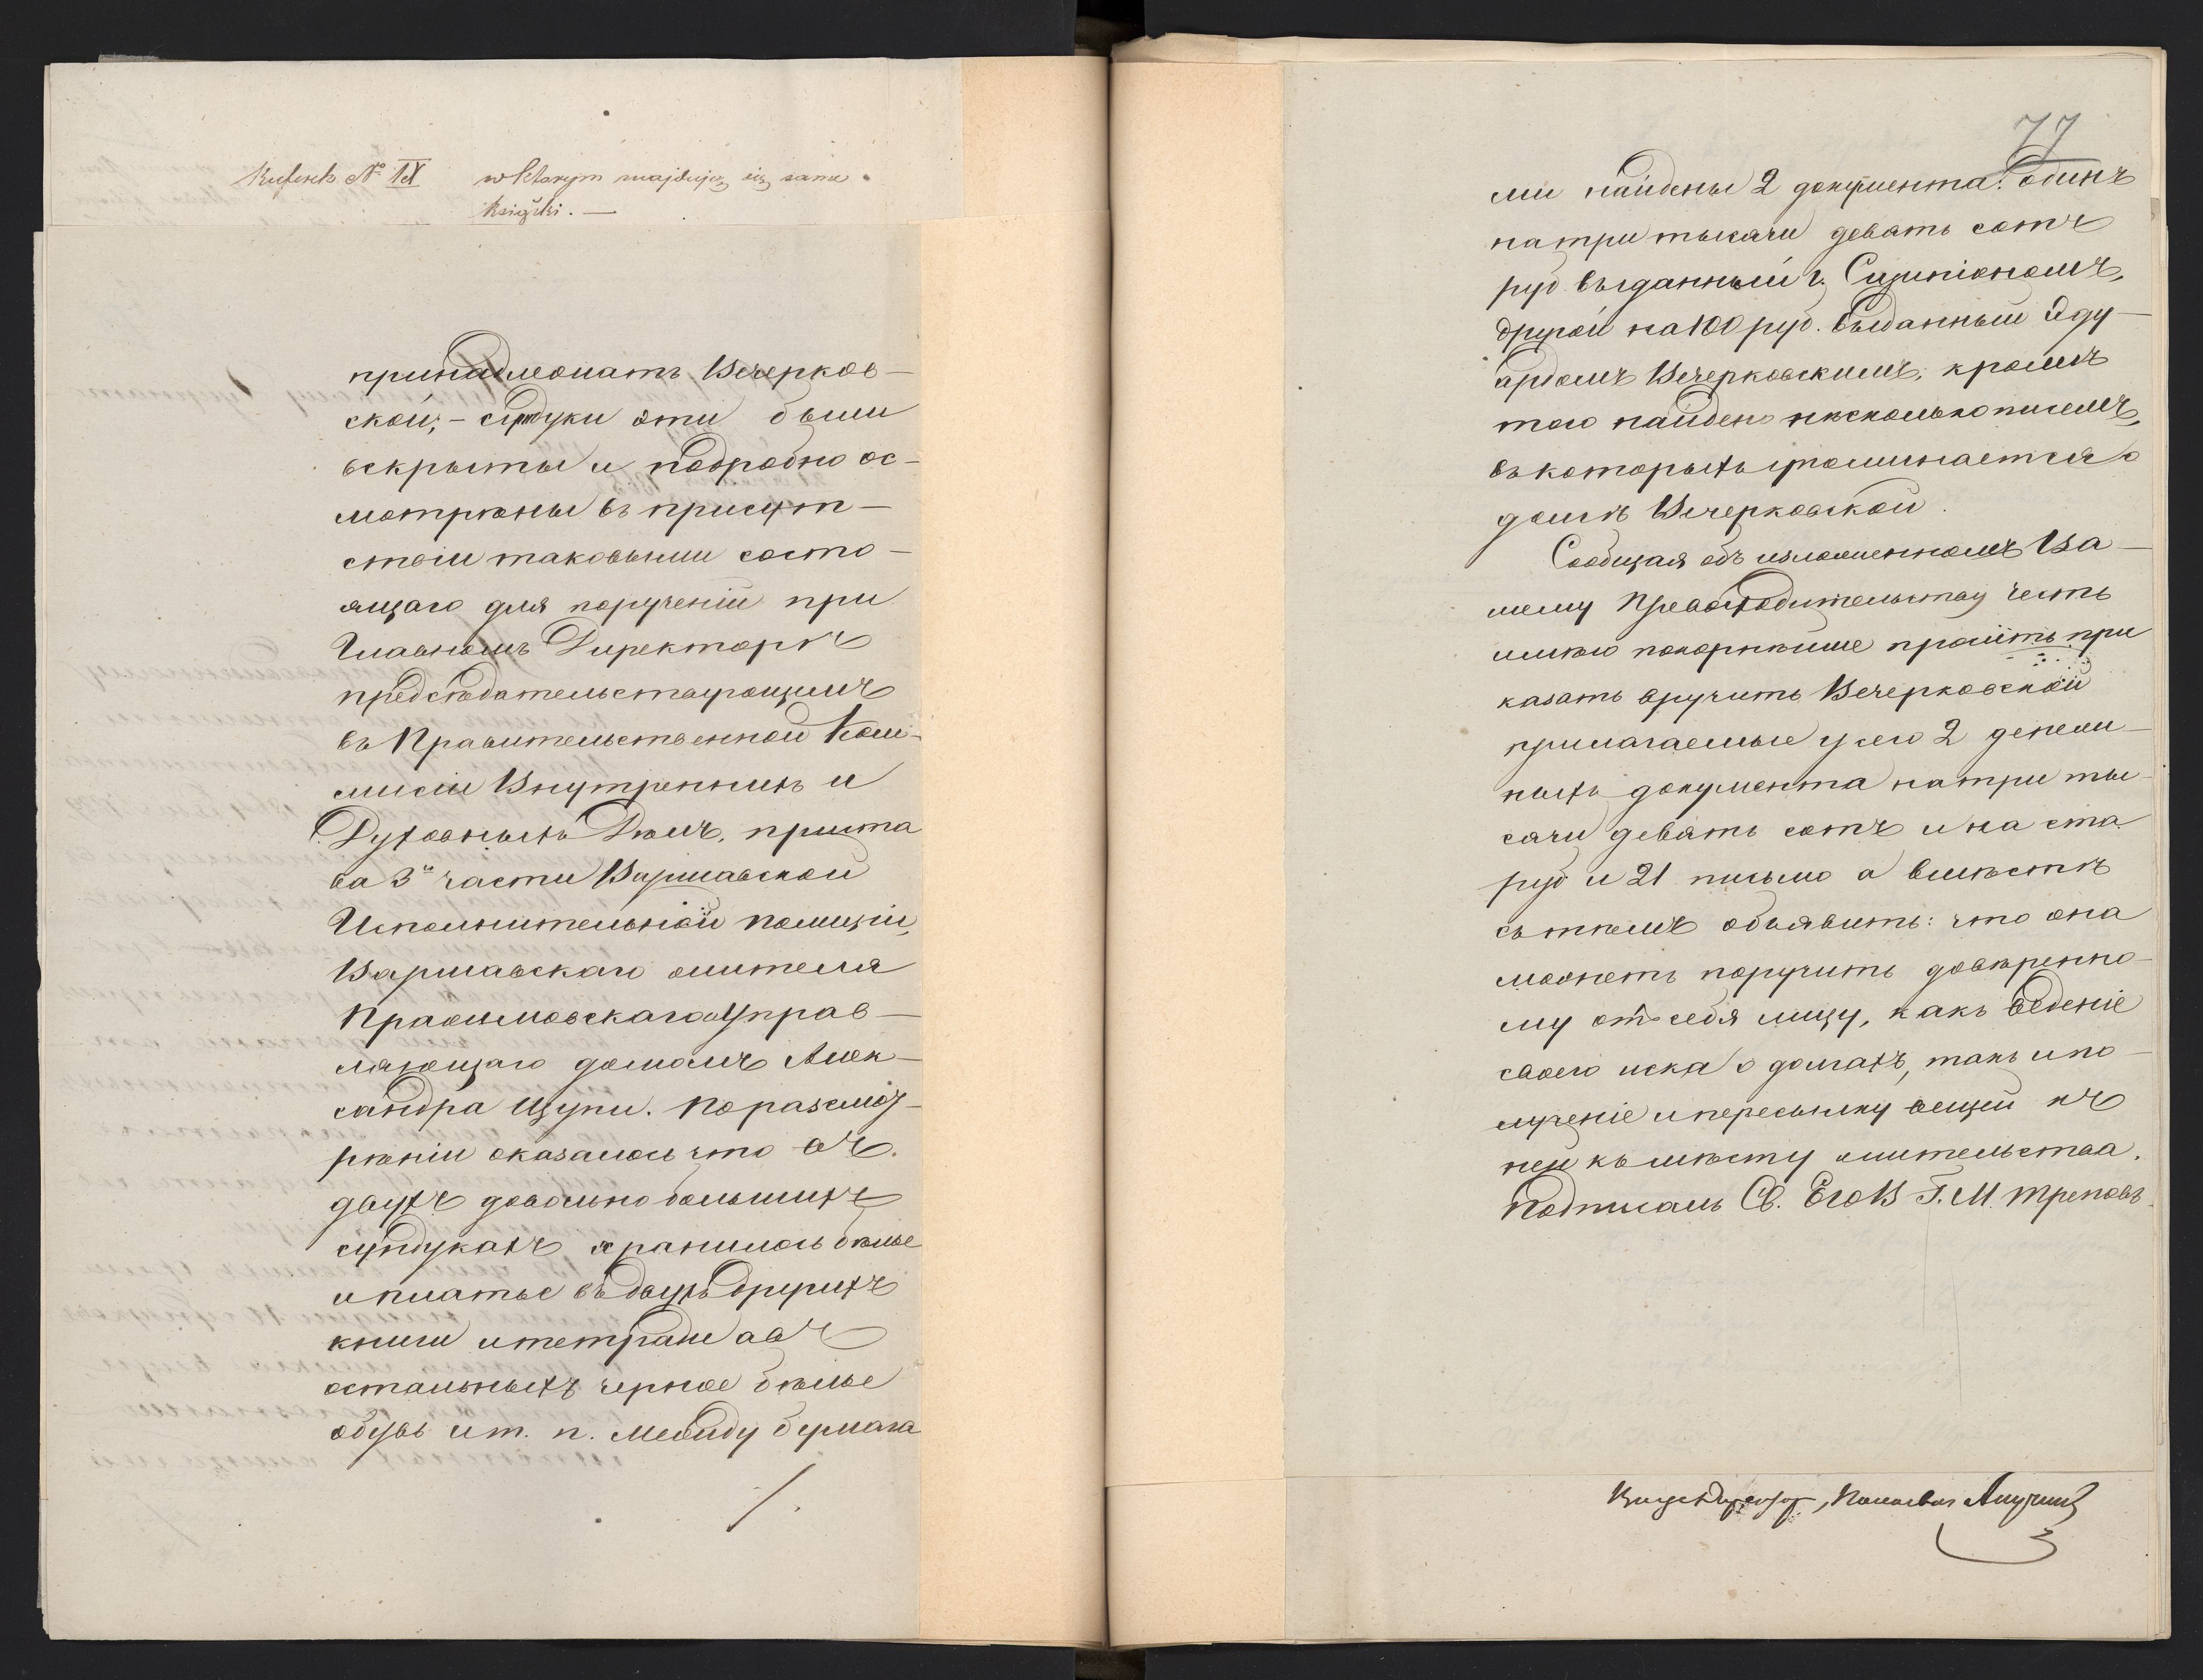 Kuferek № IX w którym znajdują się same
książki. —
принадлежатъ Вечерков-
ской; - сундуки эти были
вскрыты и подробно ос-
мотрѣны въ присут-
ствіи таковыми состо-
ящаго для порученій при
Главномъ Директорѣ
предсѣдательствующимъ
въ Правительственной Ком-
мисіи Внутреннихъ и
Духовныхъ Дѣлъ, приста
ва 3й части Варшавской
Исполнительной полиціи,
Варшавскаго жителя
и Управ-
ляющаго домомъ Алек-
сандра По разсмот-
рѣніи оказалось что въ
двухъ довольно большихъ
сундукахъ хранилось бѣлье
и платье въ двухъ другихъ
книги и тетради а въ
остальныхъ черное бѣлье
обувь и т. п. Между бумага
/.
77
ми найдены 2 документа: одинъ
на три тысячи девать сотъ
руб выданный г.
другой на 100 руб. выданный Эду-
ардомъ Вечерковскимъ; кромѣ
того найдено нѣсколько писемъ,
въ которыхъ упоминается о
долгѣ Вечерковской.
Сообщая объ изложенномъ Ва-
шему Превосходительству честь
имѣю покорнѣйше просить при
казать вручить Вечерковской
прилагаемые у сего 2 денеж-
ныхъ документа на три ты-
сячи девять сотъ и на ста
руб и 21 письмо а вмѣстѣ
съ тѣмъ объявить: что она
можетъ поручить довѣренно-
му отъ себя лицу, какъ веденіе
своего иска о долгахъ, такъ и по-
лученіе и пересылку вещей къ
ней къ мѣсту жительства.
Подписалъ Св. Его В. Г. М. Треповъ